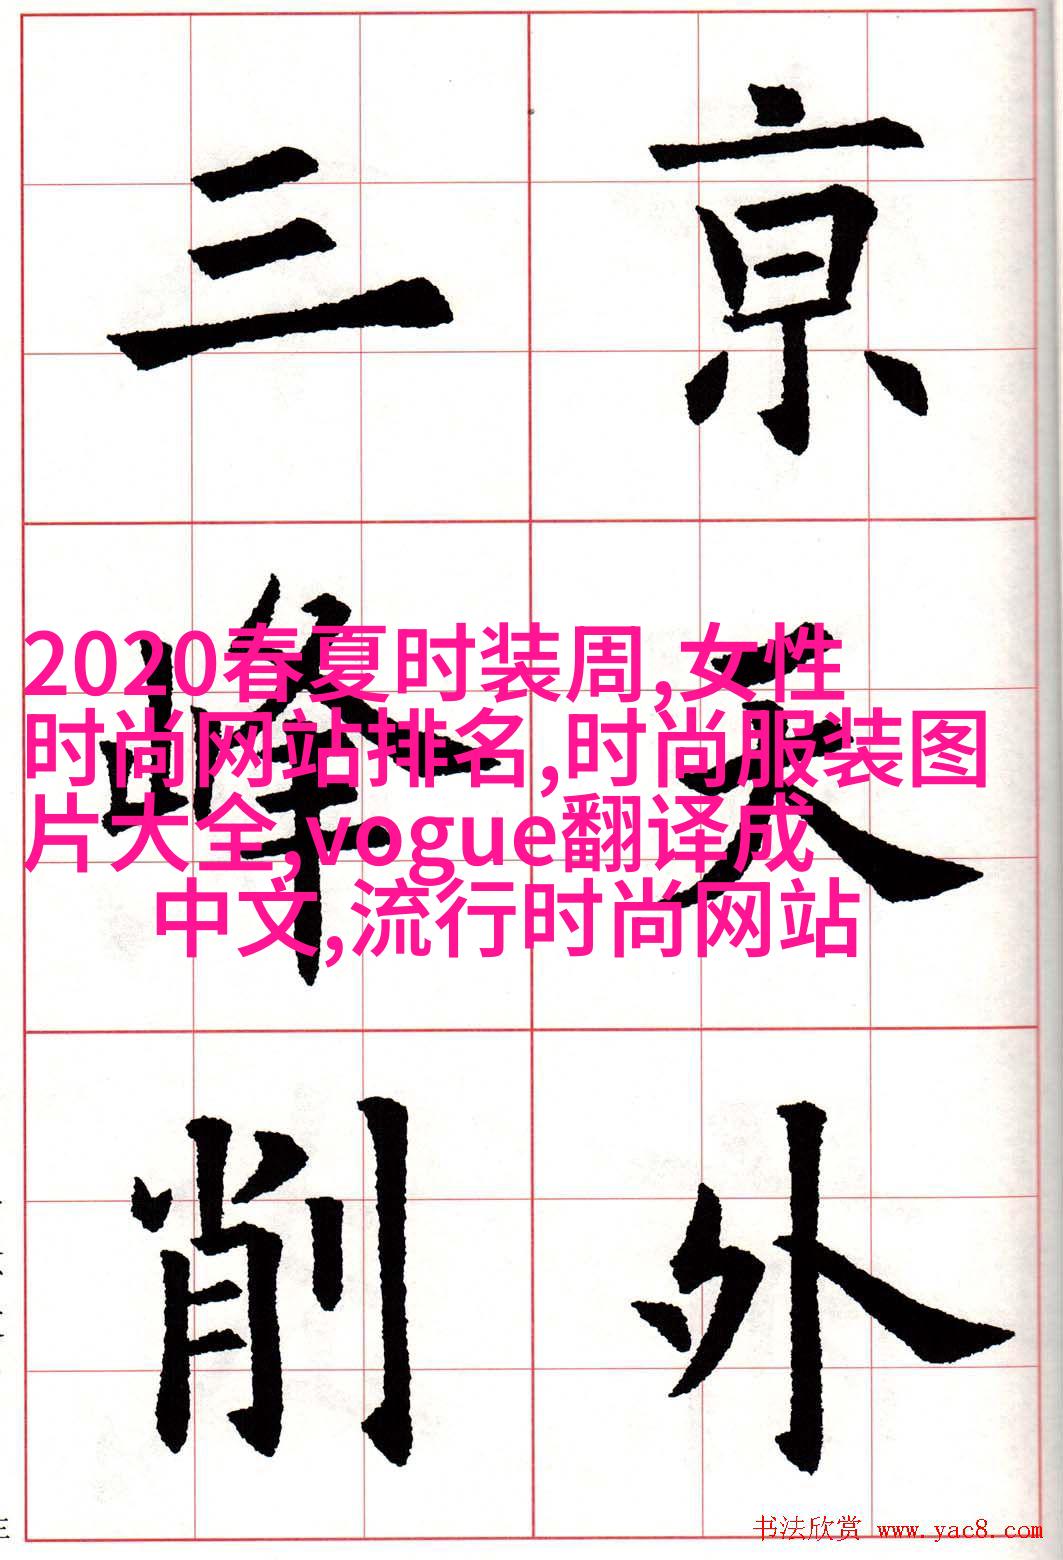 亰天外
三峰削
2020春夏时装周,女性
时尚网站排名,时尚服装图
片大全,vogue翻译成
中文,流行时尚网站
书法欣赏 www.yac8.com